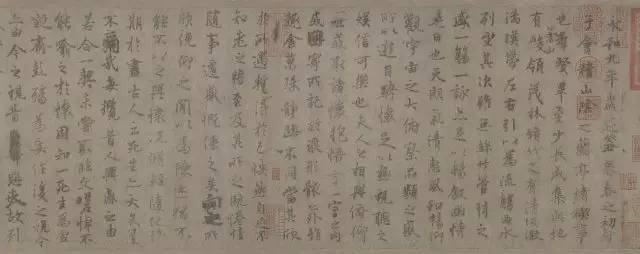 永和九年歲在癸丑暮春之初會
于會稽山陰之蘭亭脩稧事
也羣賢畢至少長咸集此地
有崇山峻領茂林脩竹又有清流激
湍暎帶左右引以為流觴曲水
列坐其次雖無絲竹管弦之
盛一觴一詠亦足以暢敘幽情
是日也天朗氣清惠風和暢仰
觀宇宙之大俯察品類之盛
所以遊目騁懷足以極視聽之
娛信可樂也夫人之相與俯仰
一世或取諸懷抱悟言一室之內
或因寄所託放浪形骸之外雖
趣舍萬殊靜躁不同當其欣
於所遇蹔得於己快然自足不
知老之將至及其所之既惓情
隨事遷感慨係之矣向之所
欣俛仰之閒以為陳迹猶不
能不以之興懷況脩短隨化終
期於盡古人云死生亦大矣豈
不痛哉每攬昔人興感之由
若合一契未嘗不臨文嗟悼不
能喻之於懷固知一死生為虛
誕齊彭殤為妄作後之視今
亦由今之視昔悲夫故列